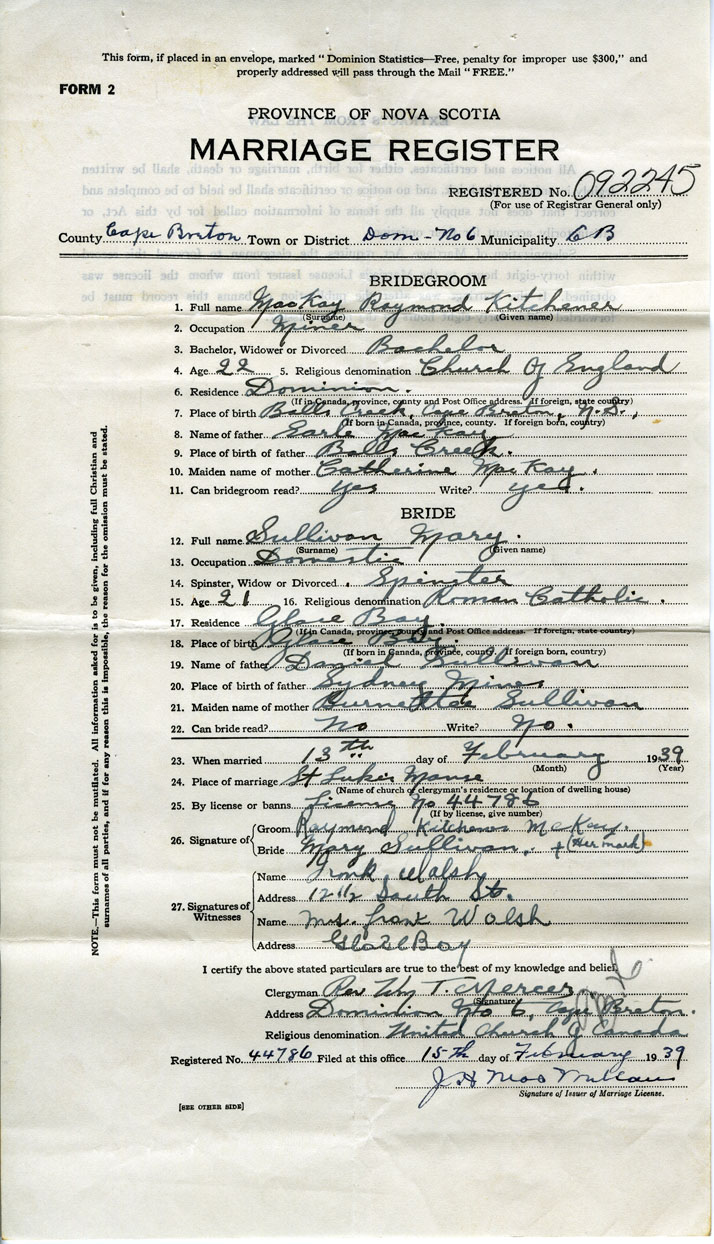 This form, if placed in an envelope, marked "Dominion Statistics—Free, penalty for improper use $300," and
properly addressed will pass through the Mail "FREE."
FORM 2
PROVINCE OF NOVA SCOTIA
MARRIAGE REGISTER
REGISTERED No. 092245
(For use of Registrar General only)
County Cape Breton Town or District Dom - No 6 Municipality C B
BRIDEGROOM
1. Full name MacKay Raymond Kitchener
(Surname) (Given name)
2. Occupation Miner
3. Bachelor, Widower or Divorced Bachelor
4. Age 22 5. Religious denomination Church Of England
6. Residence Dominion.
(If in Canada, province, county and Post Office address. If foreign, state country)
7. Place of birth Balls Creek, Cape Breton, N.S.,
(If born in Canada, province, county. If foreign born, country)
8. Name of father Earle MacKay
9. Place of father Balls Creek.
10. Maiden name of mother Catherine MacKay.
11. Can bridegroom read? yes Write? yes.
BRIDE
12. Full name Sullivan Mary.
(Surname) (Given name)
13. Occupation Domestic
14. Spinster, Widow or Divorced Spinster
15. Age 21 16. Religious denomination Roman Catholic.
17. Residence Glace Bay.
(If in Canada, province, county and Post Office address. If foreign, state country)
18. Place of birth Glace Bay.
(If born in Canada, province, county. If foreign born, country)
19. Name of father Daniel Sullivan
20. Place of birth of father Sydney Mines
21. Maiden name of mother Sullivan
22. Can bride read? No Write? No.
23. When married 13th day of February 1939
(Month) (Year)
24. Place of marriage St Lukes Manse
(Name of church or clergyman's residence or location of dwelling house)
25. By license or banns License No 44786
(If by license, give number)
26. Signature of Groom Raymond Kitchener McKay.
Bride Mary Sullivan. + (Her mark)
27. Signatures of Witnesses
Name Frank Walsh
Address 12½ South St.
Name Mrs. Frank Walsh
Address Glace Bay
I certify the above stated particulars are true to the best of my knowledge and belief.
Clergyman Rev Wm T. Mercer.
(Signature)
Address Dominion No 6, Cape Breton.
Religious denomination United Church of Canada
Registered No. 44786 Filed at this office 15th day of February 1939
J H MacMillan
Signature of Issuer of Marriage License.
[SEE OTHER SIDE]
NOTE.—This form must not be mutilated. All information asked for is to be given, including full Christian and
surnames of all parties, and if for any reason this is impossible, the reason for the omission must be stated.